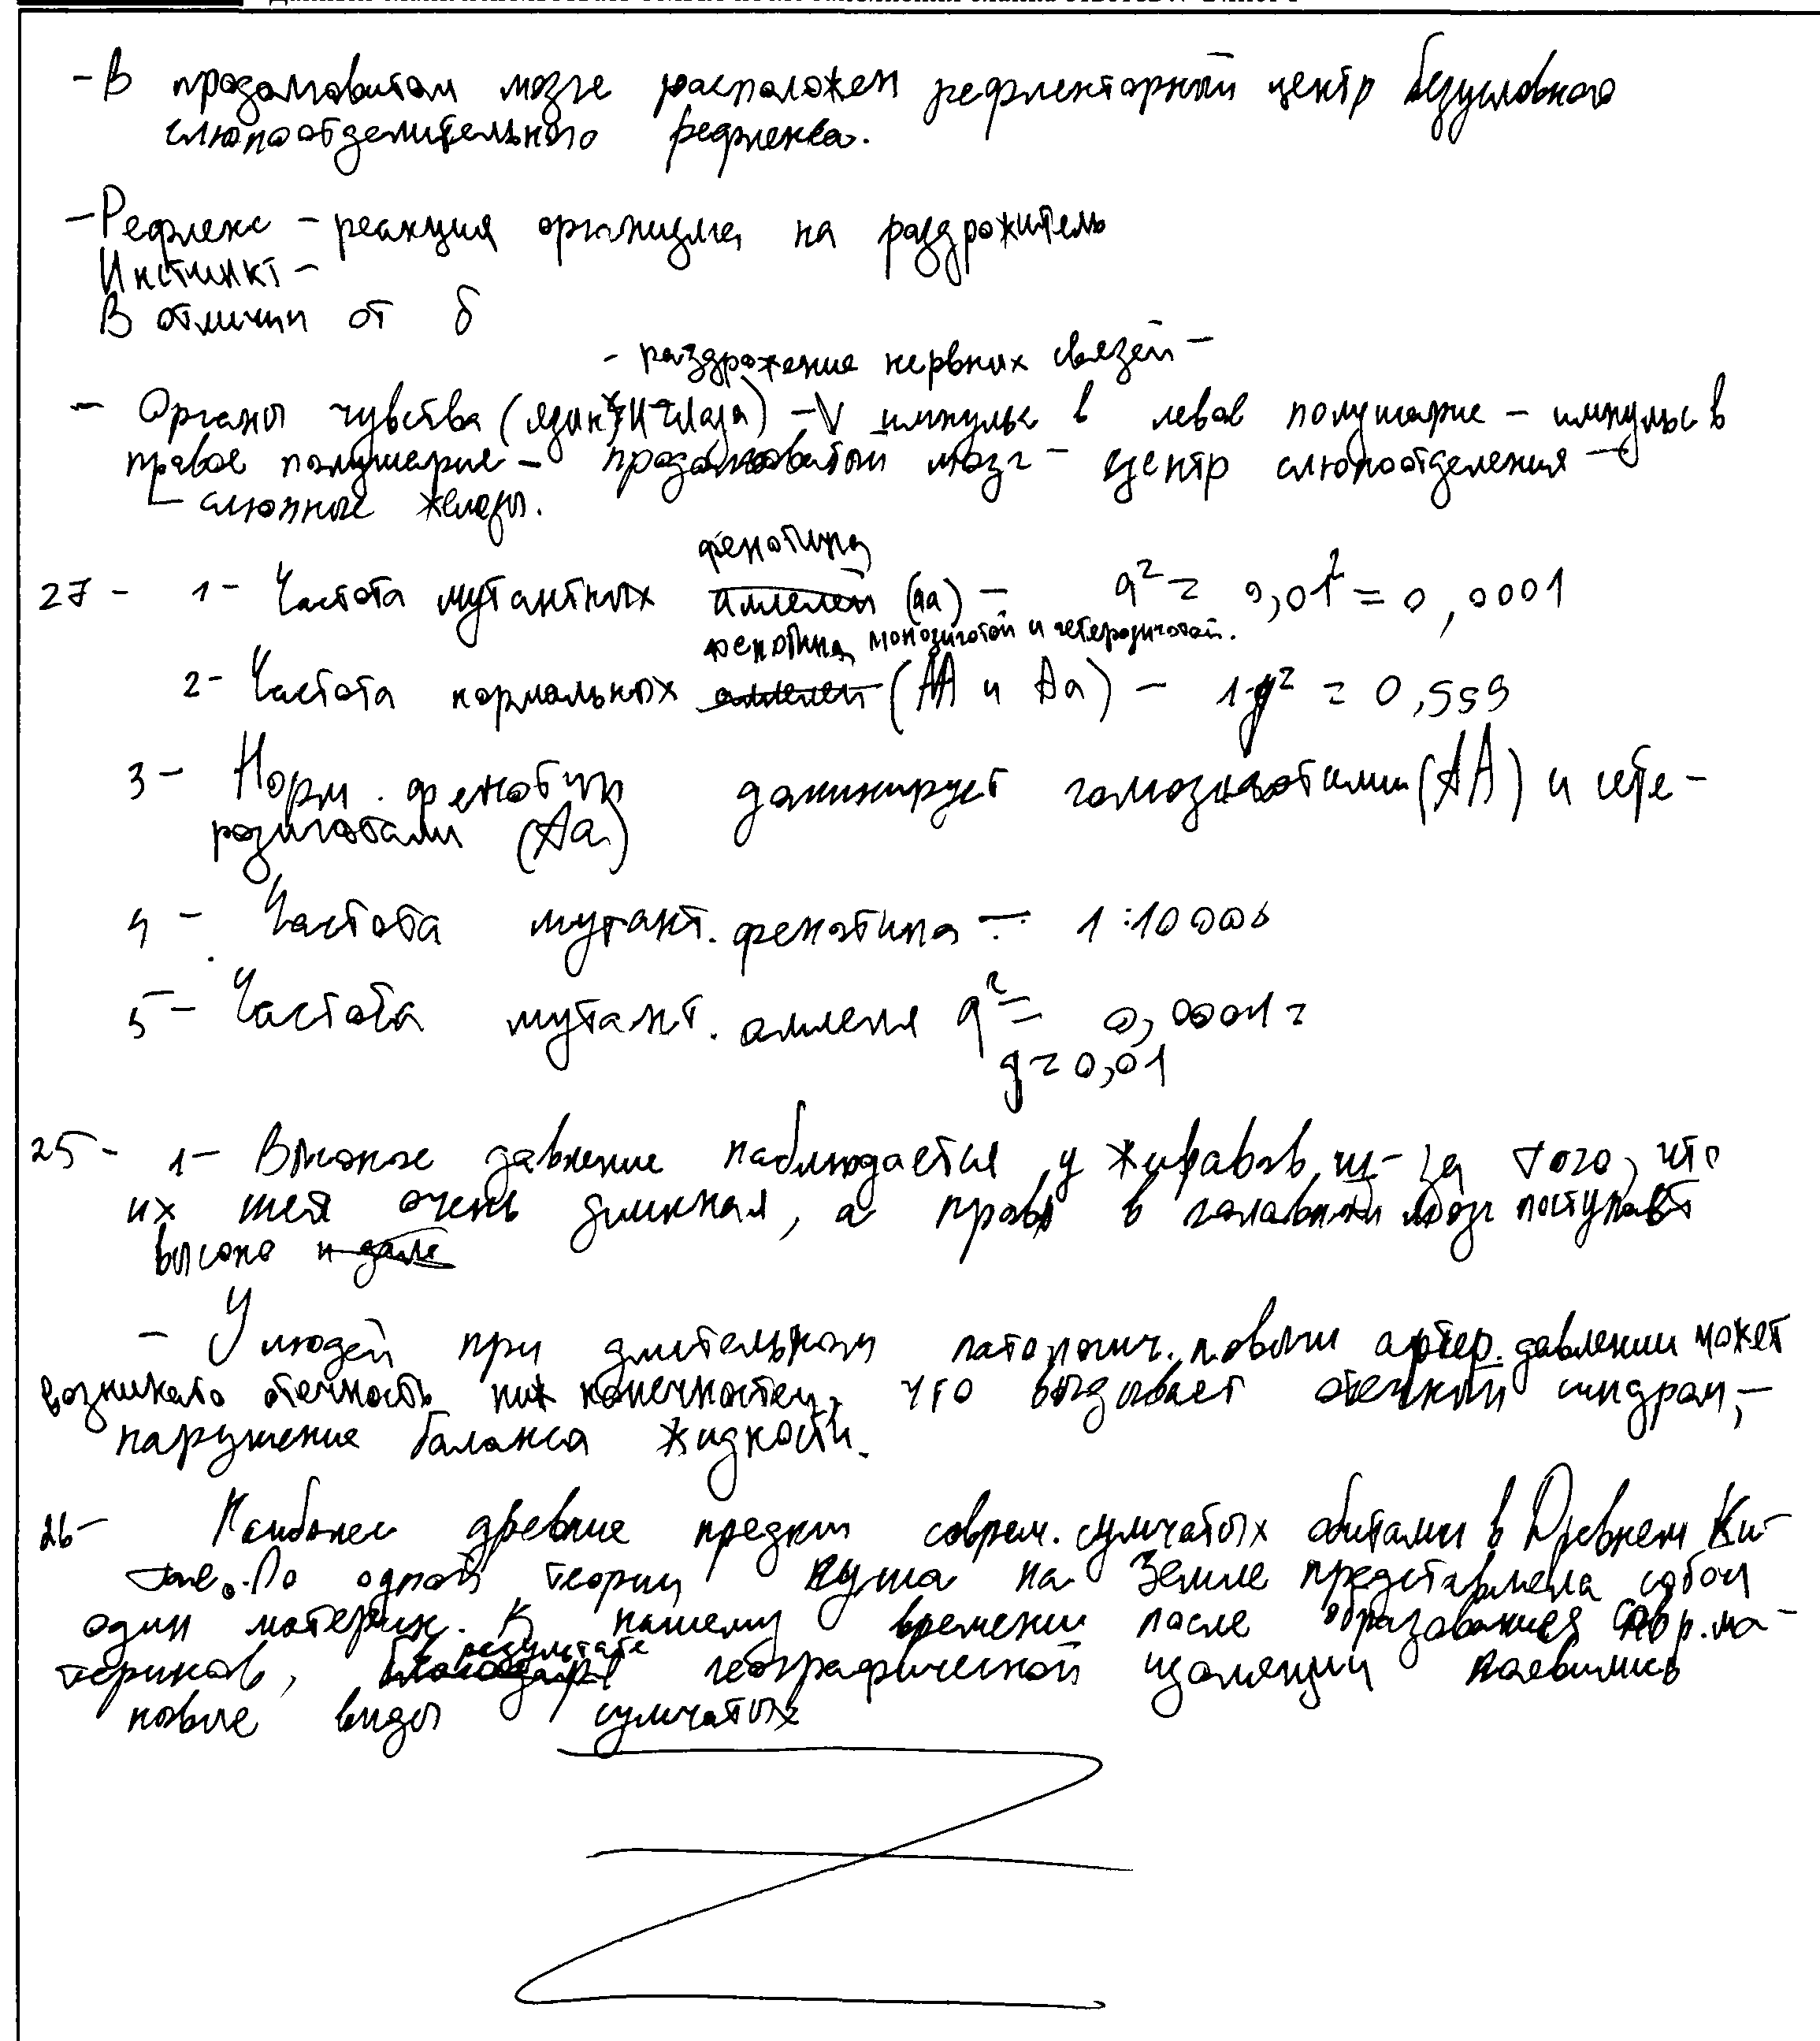 - В продолговатом мозге расположен рефлекторный центр безусловного
слюноотделительного рефлекса.
- Рефлекс - реакция организма на раздрожитель
Инстинкт -
В отличии от б
- раздражение нервных связей -
- Органы чувства (язык и глаза) - импульс в левое полушарие - импульс в
правое полушарие - продолговатый мозг - центр слюноотделения -
слюнные железы.
фенотипа
27 - 1 - Частота мутантных аллелей (аа) - q² = 0,01² = 0,0001
фенотипа монозиготой и гетерозиготой.
2 - Частота нормальных аллелей (АА и Аа) - 1-q² = 0,999
3 - Норм. фенотип доминирует гомозиготами (АА) и гете-
розиготами (Аа)
4 - Частота мутант. фенотипа - 1:10000
5 - Частота мутант. аллеля q² = 0,0001 =
q = 0,01
25 - 1 - Высокое давление наблюдается у жирафов из-за того, что
их шея очень длинная, а кровь в головной мозг поступает
высоко и дале
- У людей при длительном патологич. повыш артер. давлении может
возникать отечность ниж конечностей, что вызывает отечный синдром, -
нарушение баланса жидкости.
26 - Наиболее древние предки соврем. сумчатых обитали в Древнем Ки-
тае. По одной теории суша на Земле представляла собой
один материк. К нашему времени после образования совр. ма-
результате
териков, благодаря географической изоляции появились
новые виды сумчатых